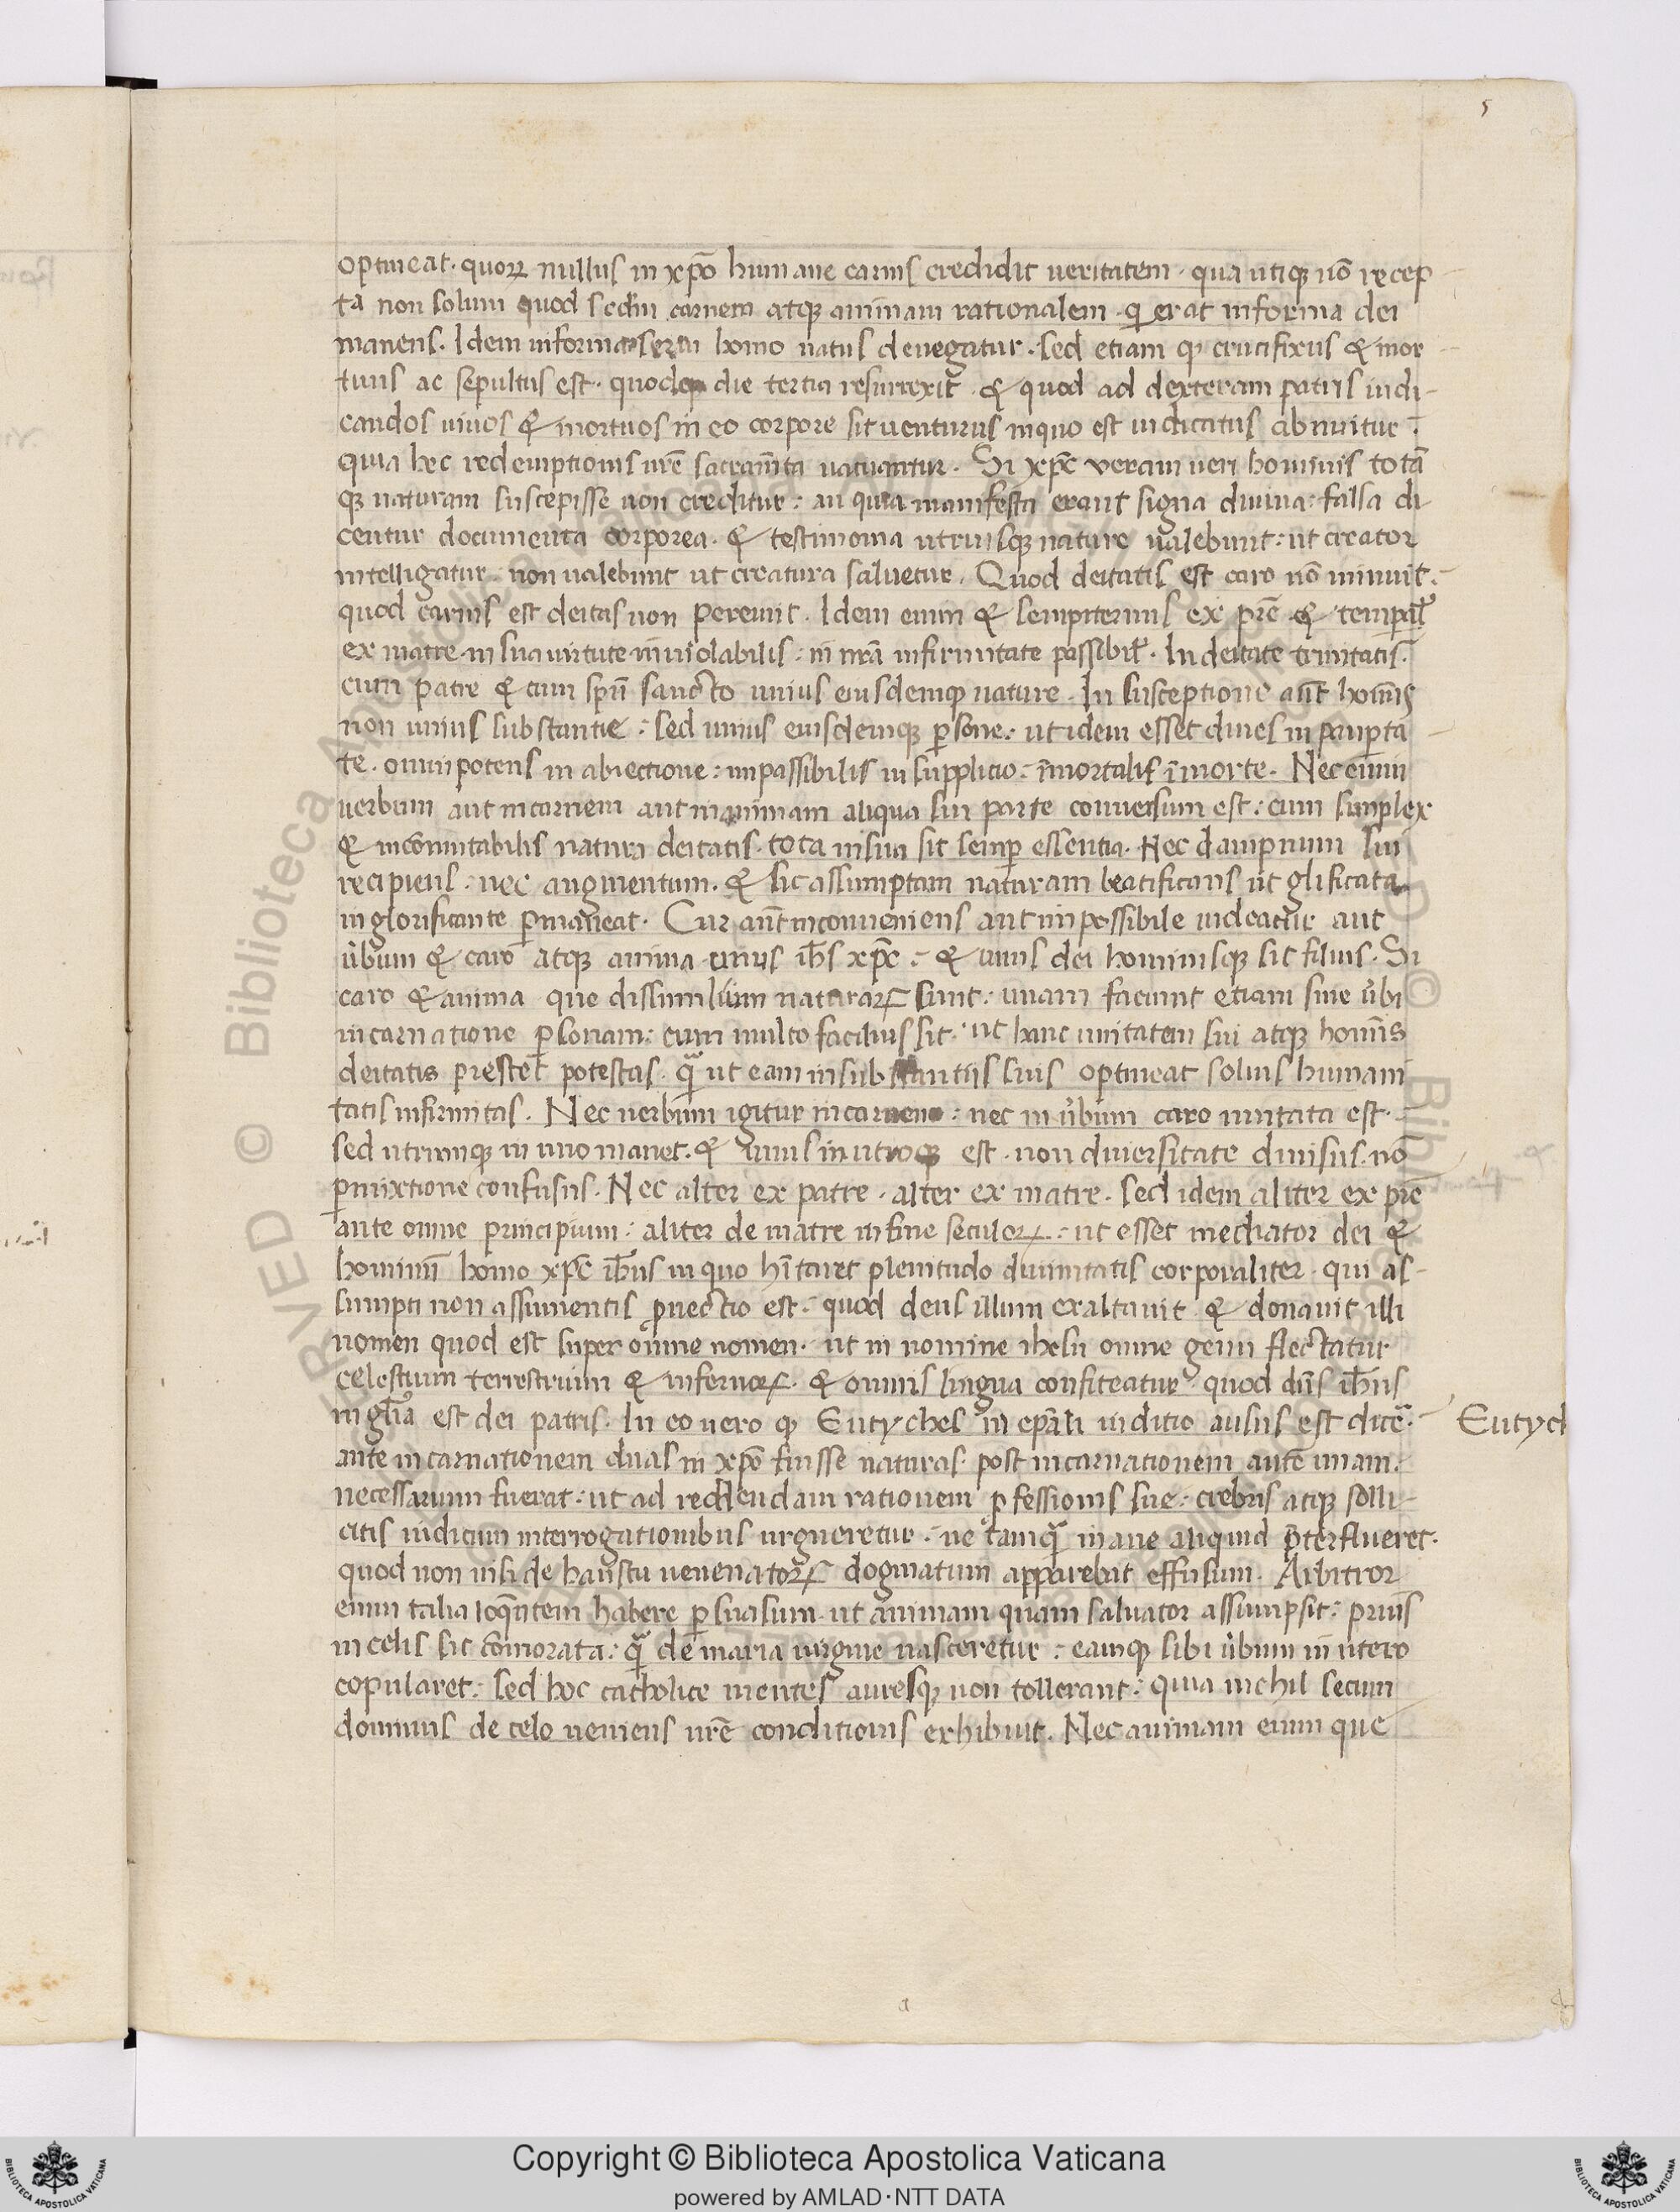 5
optineat · quorꝝ nullus in xp̄o humane carnis credidit veritatem · qua utiqꝫ nō recep
ta non solum quod scdm̄ carnem atqꝫ animam rationalem · qi erat in forma dei
manens · Idem in forma serui homo natus denegatur · sed etiam qꝫ crucifixus & mor
tuus ac sepultus est · quod die tertia resurrexit · & quod ad dexteram patris iudi-
candos uiuos & mortuos in eo corpore sit uenturus in quo est iudicatus abnuitur :
quia hec redemptionis nr̄e sacramīta uacuantur · Si xp̄c veram ueri hominis totā
qꝫ naturam suscepisse non creditur : an quia manifesta erant signa diuina : falsa di-
centur documenta corporea · & testimonia utriusqꝫ nature ualebunt : ut creator
intelligatur · non ualebunt ut creatura saluetur · Quod deitatis est caro nō minuit ·
quod carnis est deitas non peremit · Idem enim & sempiternus ex pr̄e & temꝑal̄
ex matre in sua uirtute inuiolabilis : in nr̄a infirmitate passibil̄ · In deitate trinitatis ·
cum patre & cum spū sancto unius eiusdemqꝫ nature · In susceptione aūt homīs
non unius substantie : sed unius eiusdemqꝫ ꝑsone : ut idem esset diues in pauꝑta
te · omnipotens in abiectione : inpassibilis in supplicio : īmortalis ī morte · Nec enim
uerbum aut in carnem aut in animam aliqua sui parte conuersum est : cum simplex
& incōmutabilis natura deitatis · tota in sua sit semꝑ essentia · Nec dampnum sui
recipiens · nec augmentum · & sic assumptam naturam beatificans ut gl̄ificata
in glorificante ꝑmaneat · Cur aūt inconueniens aut inpossibile uideatur aut
ūbum & caro atqꝫ anima unus ih̄s xp̄c : & unus dei hominisqꝫ sit filius · Si
caro & anima que dissimilium naturarꝝ sunt : unam faciunt etiam sine ūbi
incarnatione ꝑsonam : cum multo facilius sit · ut hanc unitatem sui atqꝫ homīs
deitatis prestet potestas · qᷓ ut eam in substantiis suis optineat solius humani
tatis infirmitas · Nec uerbum igitur in carnem : nec in ūbum caro mutata est ·
sed utrumqꝫ in uno manet · & unus in utroqꝫ est · non diuersitate diuisus · nō
ꝑmixtione confusus · Nec alter ex patre · alter ex matre · sed idem aliter ex pr̄e
ante omne principium : aliter de matre in fine seculorꝝ : ut esset mediator dei &
hominū homo xp̄c ih̄us in quo hītaret plenitudo diuinitatis corporaliter · qui as-
sumpti non assumentis ꝓuectio est : quod deus illum exaltauit & donauit illi
nomen quod est super omne nomen · ut in nomine ihesu omne genu flectatur
celestium terrestrium & infernorꝝ · & omnis lingua confiteatur · quod dn̄s ih̄us
in gl̄ia est dei patris · In eo uero qꝫ Eutyches in ep̄ali iuditio ausus est dicē ·
Eutych
ante incarnationem duas in xp̄o fuisse naturas · post incarnationem autē unam ·
necessarium fuerat : ut ad reddendam rationem ꝓfessionis sue : crebris atqꝫ solli-
citis iudicum interrogationibus urgueretur : ne tamqᷓ inane aliquid p̄terflueret ·
quod non nisi de haustu uenenatorꝝ dogmatum apparebat effusum · Arbitror
enim talia loq̄ntem habere ꝑsuasum · ut animam quam saluator assumpsit : prius
in celis sit cōmorata : qᷓ de maria uirgine nasceretur : eamqꝫ sibi ūbum in utero
copularet : Sed hoc catholice mentes auresqꝫ non tollerant : quia nichil secum
dominus de celo ueniens nr̄e conditionis exhibuit · Nec animam enim que
a
© Biblioteca Apostolica Vaticana
Copyright © Biblioteca Apostolica Vaticana
powered by AMLAD·NTT DATA